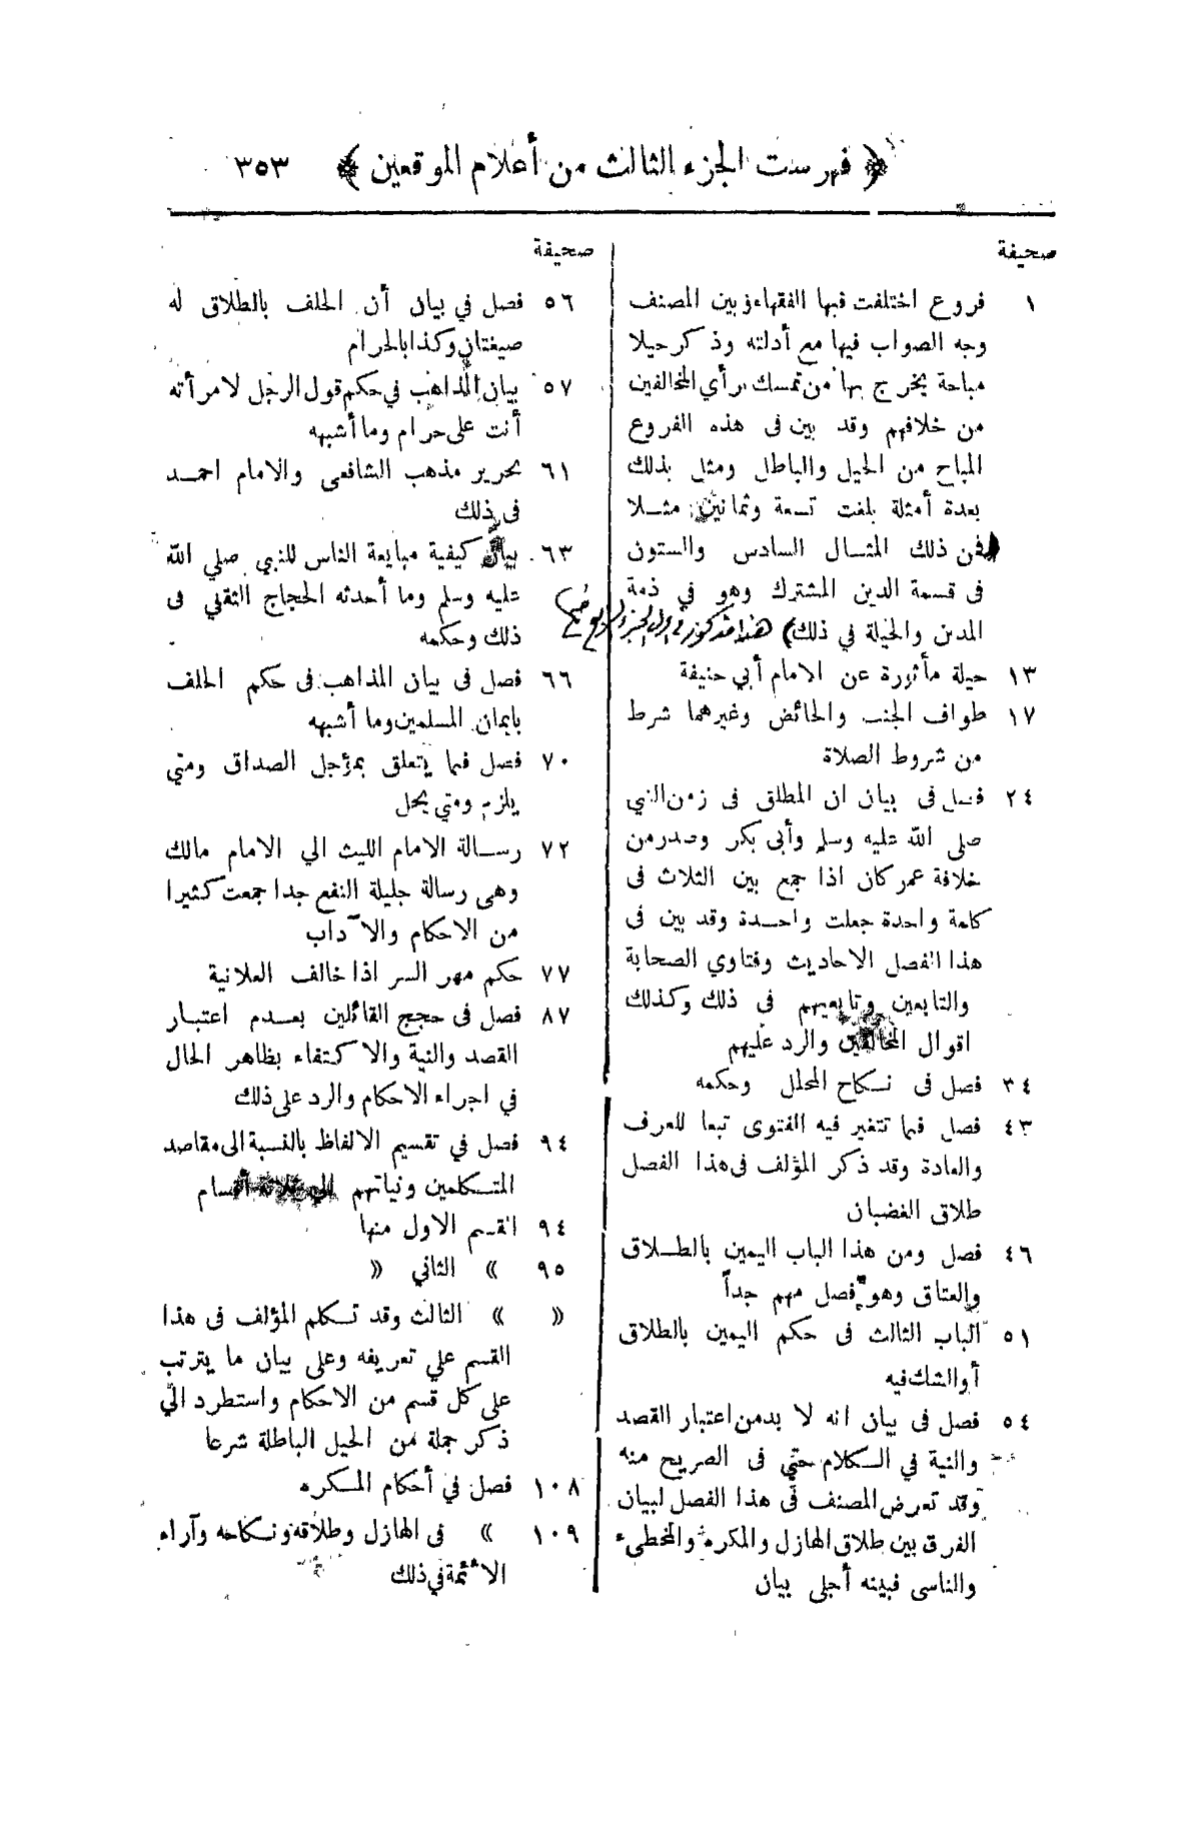 ﴿ فهرست الجزء الثالث من أعلام الموقعين ﴾ ٣٥٣
صحيفة
١ فروع اختلفت فيها الفقهاء وبين المصنف
وجه الصواب فيها مع أدلته وذكر حيلا
مباحة يخرج بها من تمسك برأي المخالفين
من خلافهم وقد بين فى هذه الفروع
المباح من الحيل والباطل ومثل بذلك
بعدة أمثلة بلغت تسعة وثمانين مثلا
(فمن ذلك المثال السادس والستون
فى قسمة الدين المشترك وهو في ذمة
المدين والحيلة في ذلك) هذا مذكور في اول الجزء الرابع
١٣ حيلة مأثورة عن الامام أبي حنيفة
١٧ طواف الجنب والحائض وغيرهما شرط
من شروط الصلاة
٢٤ فصل فى بيان ان المطلق فى زمن النبي
صلى الله عليه وسلم وأبى بكر وصدر من
خلافة عمر كان اذا جمع بين الثلاث فى
كلمة واحدة جعلت واحدة وقد بين فى
هذا الفصل الاحاديث وفتاوي الصحابة
والتابعين وتابعيهم في ذلك وكذلك
اقوال المخالفين والرد عليهم
٣٤ فصل فى نكاح المحلل وحكمه
٤٣ فصل فيما تتغير فيه الفتوى تبعا للعرف
والعادة وقد ذكر المؤلف فى هذا الفصل
طلاق الغضبان
٤٦ فصل ومن هذا الباب اليمين بالطلاق
والعتاق وهو فصل مهم جداً
٥١ الباب الثالث فى حكم اليمين بالطلاق
أو الشك فيه
٥٤ فصل فى بيان انه لا بد من اعتبار القصد
والنية في الكلام حتي فى الصريح منه
وقد تعرض المصنف في هذا الفصل لبيان
الفرق بين طلاق الهازل والمكره والمخطىء
والناسى فبينه أجلى بيان
صحيفة
٥٦ فصل في بيان أن الحلف بالطلاق له
صيغتان وكذا بالحرام
٥٧ بيان المذاهب في حكم قول الرجل لامرأته
أنت على حرام وما أشبهه
٦١ تحرير مذهب الشافعى والامام احمد
فى ذلك
٦٣ بيان كيفية مبايعة الناس للنبي صلي الله
عليه وسلم وما أحدثه الحجاج الثقفي فى
ذلك وحكمه
٦٦ فصل فى بيان المذاهب فى حكم الحلف
بايمان المسلمين وما أشبهه
٧٠ فصل فيما يتعلق بمؤجل الصداق ومتي
يلزم ومتي يحل
٧٢ رسالة الامام الليث الي الامام مالك
وهى رسالة جليلة النفع جدا جمعت كثيرا
من الاحكام والآداب
٧٧ حكم مهر السر اذا خالف العلانية
٨٧ فصل فى حجج القائلين بعدم اعتبار
القصد والنية والاكتفاء بظاهر الحال
في اجراء الاحكام والرد على ذلك
٩٤ فصل في تقسيم الالفاظ بالنسبة الى مقاصد
المتكلمين ونياتهم الي ثلاثة أقسام
٩٤ القسم الاول منها
٩٥ » الثاني «
« » الثالث وقد تكلم المؤلف فى هذا
القسم علي تعريفه وعلى بيان ما يترتب
على كل قسم من الاحكام واستطرد الي
ذكر جملة من الحيل الباطلة شرعا
١٠٨ فصل في أحكام المكره
١٠٩ » فى الهازل وطلاقه ونكاحه وآراء
الائمة في ذلك